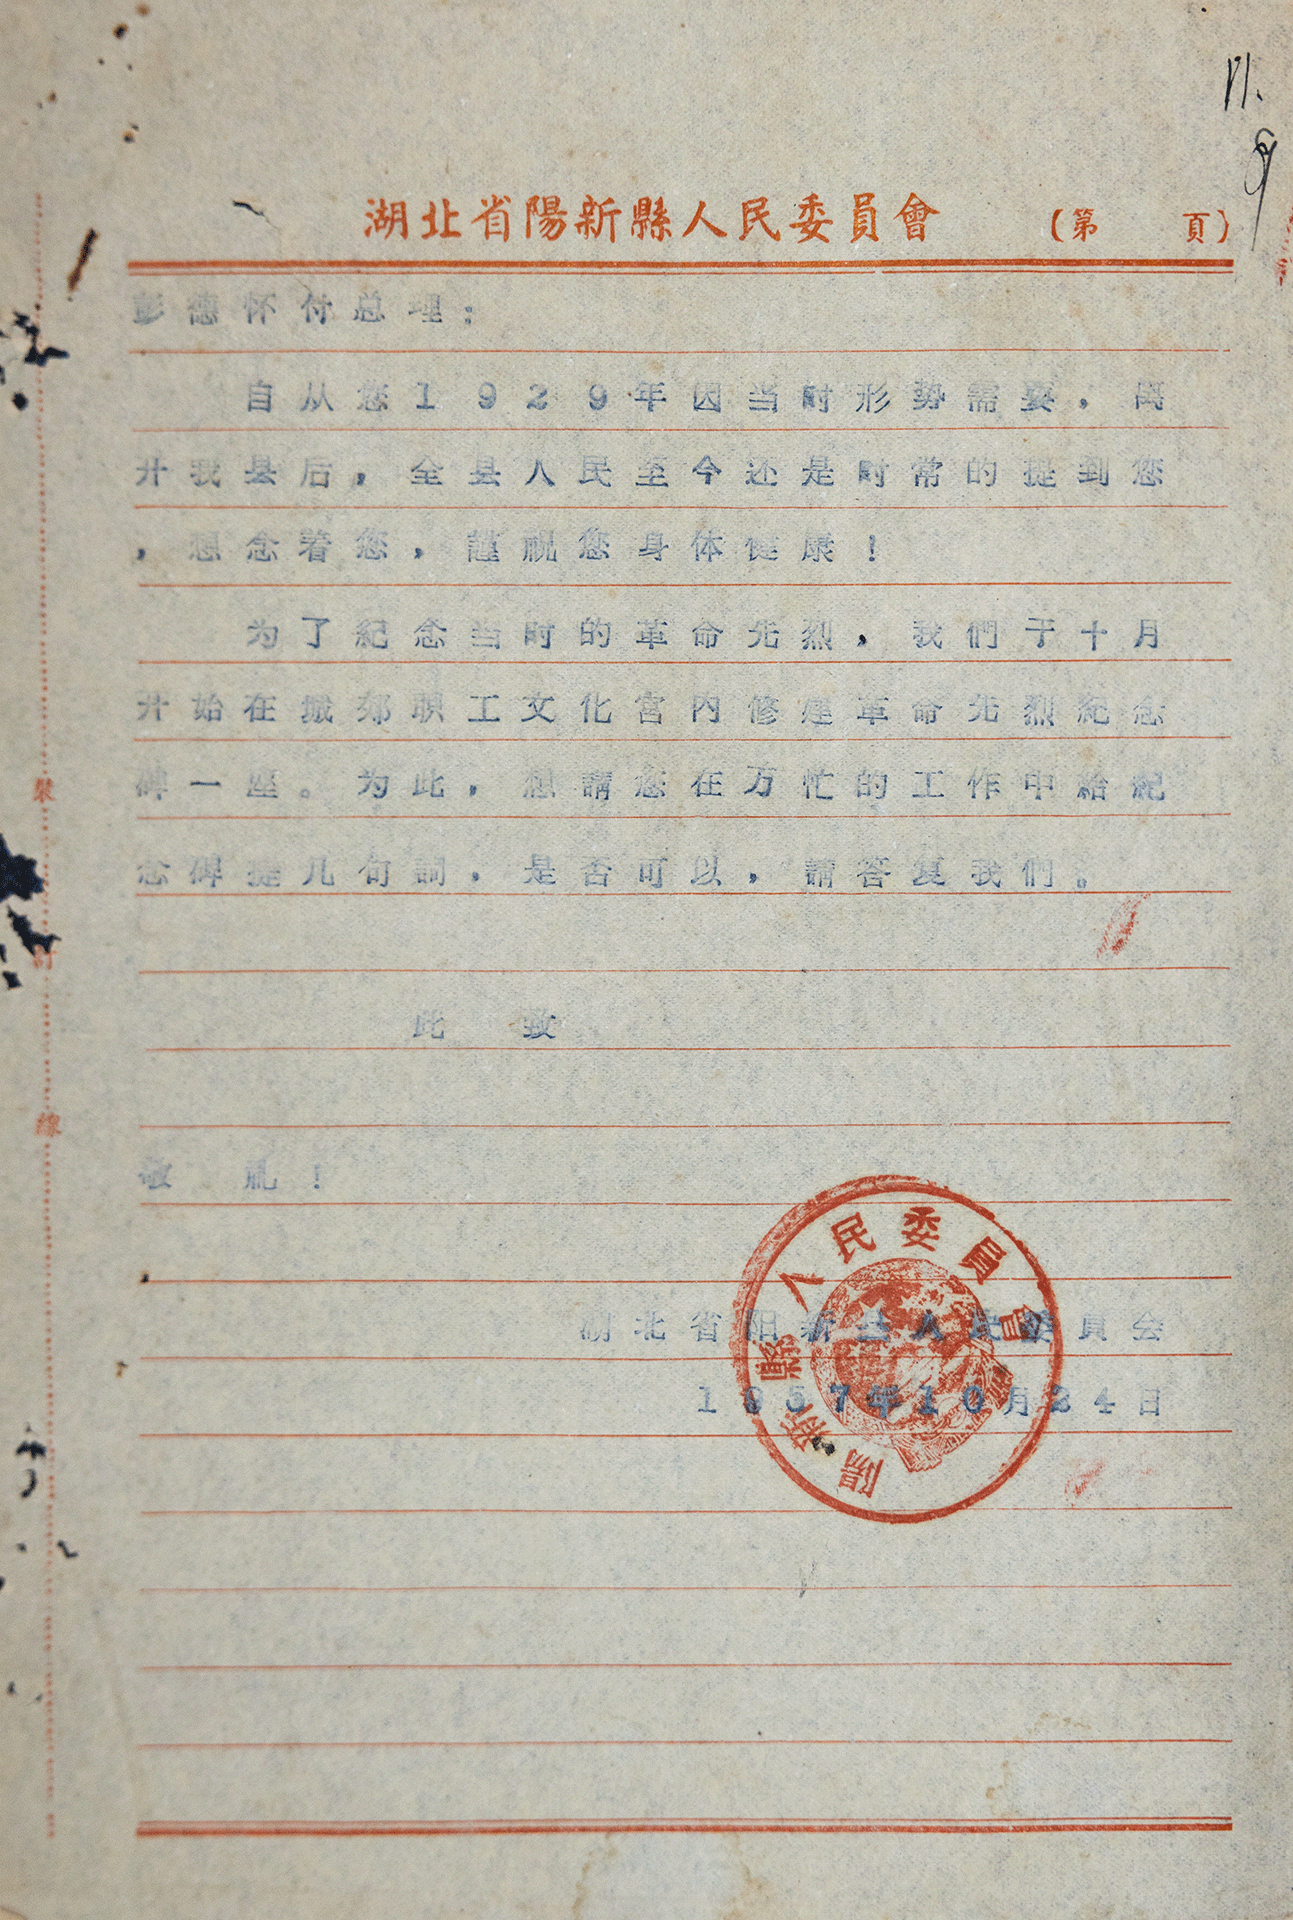 湖北省陽新縣人民委員會 （第 頁）
彭德怀付总理：
自从您1929年因当时形势需要，离
开我县后，全县人民至今还是时常的提到您
，想念着您，謹祝您身体健康！
为了紀念当时的革命先烈，我們于十月
开始在城郊职工文化宮内修建革命先烈紀念
碑一座。为此，想請您在万忙的工作中給紀
念碑提几句詞，是否可以，請答复我們。
此 致
敬 礼！
湖北省阳新县人民委員会
1957年10月24日
陽新縣人民委員會
裝
訂
線